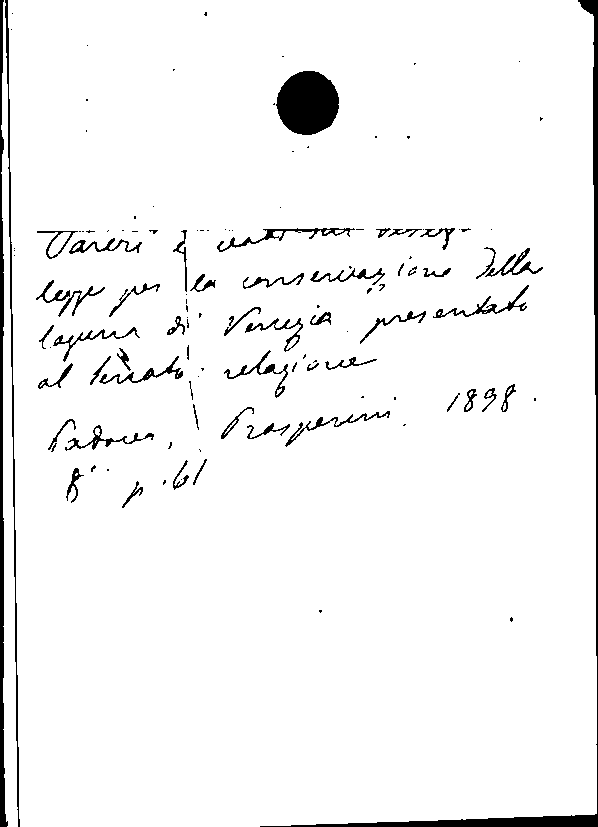 Pareri e voti sul disegno
legge per la conservazione della
laguna di Venezia presentato
al Senato: relazione
Padova, Prosperini 1898.
8° p. 61